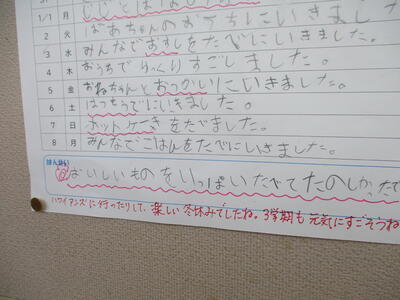 1/1 月 じじとばあばの
1/2 火 ばあちゃんのおうちにいきました
1/3 水 みんなでおすしをたべにいきました。
4 木 おうちでゆっくりすごしました。
5 金 おねちゃんとおつかいにいきました。
6 土 はつもうでにいきました。
7 日 ホットケーキをたべました。
8 月 みんなでごはんをたべにいきました。
おいしいものをいっぱいたべてたのしかったで
ハワイアンズに行ったりして、楽しい冬休みでしたね。3学期も元気にすごそうね